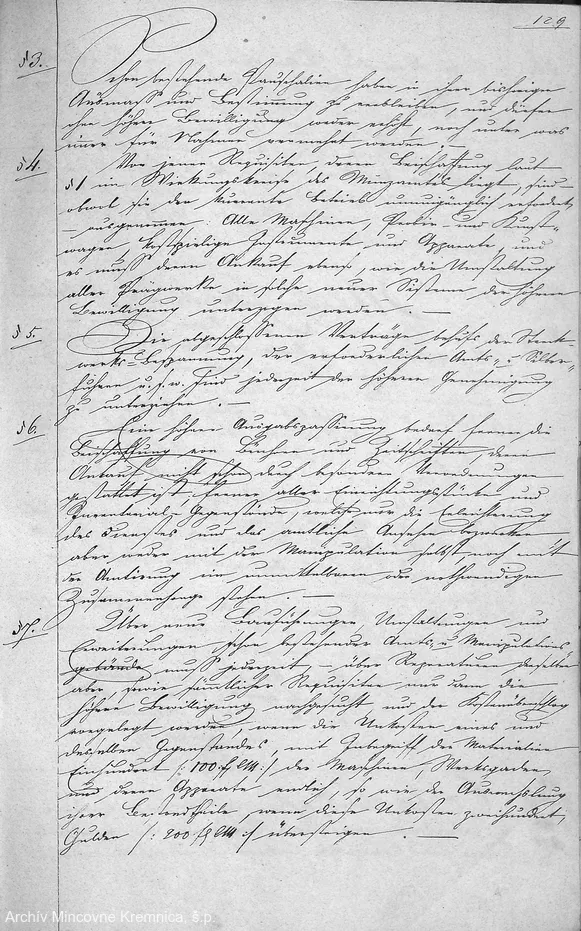 129
§ 3.
Schon bestehende Pauschalien haben in ihrer bisherigen
Ausmass und Bestimmung zu verbleiben, und dürfen
ohne höhere Bewilligung weder erhöht, noch unter was
immer für Nahmen vermehrt werden. —
§ 4.
Von jenen Requisiten, deren Beischaffung laut
§ 1 im Wirkungskreise des Münzamtes liegt, sind —
obwol sie der kurrente Betrieb unumgänglich erfordert
— ausgenommen: Alle Maschinen, Probier- und Kunst-
wagen, kostspielige Instrumente und Apparate, und
es muß deren Ankauf ebenso, wie die Umstaltung
aller Prägwerke in solche neuer Sisteme der höheren
Bewilligung unterzogen werden. —
§ 5.
Die abgeschlossenen Verträge behufs der Streck-
werks-Bespannung, der erforderlichen Amts- und Silber-
fuhren u. s. w. sind jederzeit der höheren Genehmigung
zu unterziehen. —
§ 6.
Eine höhere Ausgabspassirung bedarf ferner die
Beischaffung von Büchern und Zeitschriften, deren
Ankauf nicht schon durch besondere Verordnungen
gestattet ist; ferner aller Einrichtungsstücke und
Inventarial-Gegenstände, welche nur die Erleichterung
des Dienstes und das amtliche Ansehen bezwecken
aber weder mit der Manipulation selbst, noch mit
der Amtirung im unmittelbaren oder nothwendigen
Zusammenhange stehen. —
§ 7.
Über neue Bauführungen, Umstaltungen und
Erweiterungen schon bestehender Amts- u Manipulations-
gebäude muß jederzeit, — über Reparatur derselben
aber, sowie sämtlicher Requisiten nur dann die
höhere Bewilligung nachgesucht, und der Kostenüberschlag
vorgelegt werden, wenn die Unkosten eines und
desselben Gegenstandes, mit Inbegriff der Materialien
Einhundert /: 100 f CM :/ der Maschinen, Werksgaden,
und deren Apparate endlich, so wie der Auswechslung
ihrer Bestandtheile, wenn diese Unkosten zweihundert
Gulden /: 200 f CM :/ übersteigen. —
Archív Mincovne Kremnica, š.p.